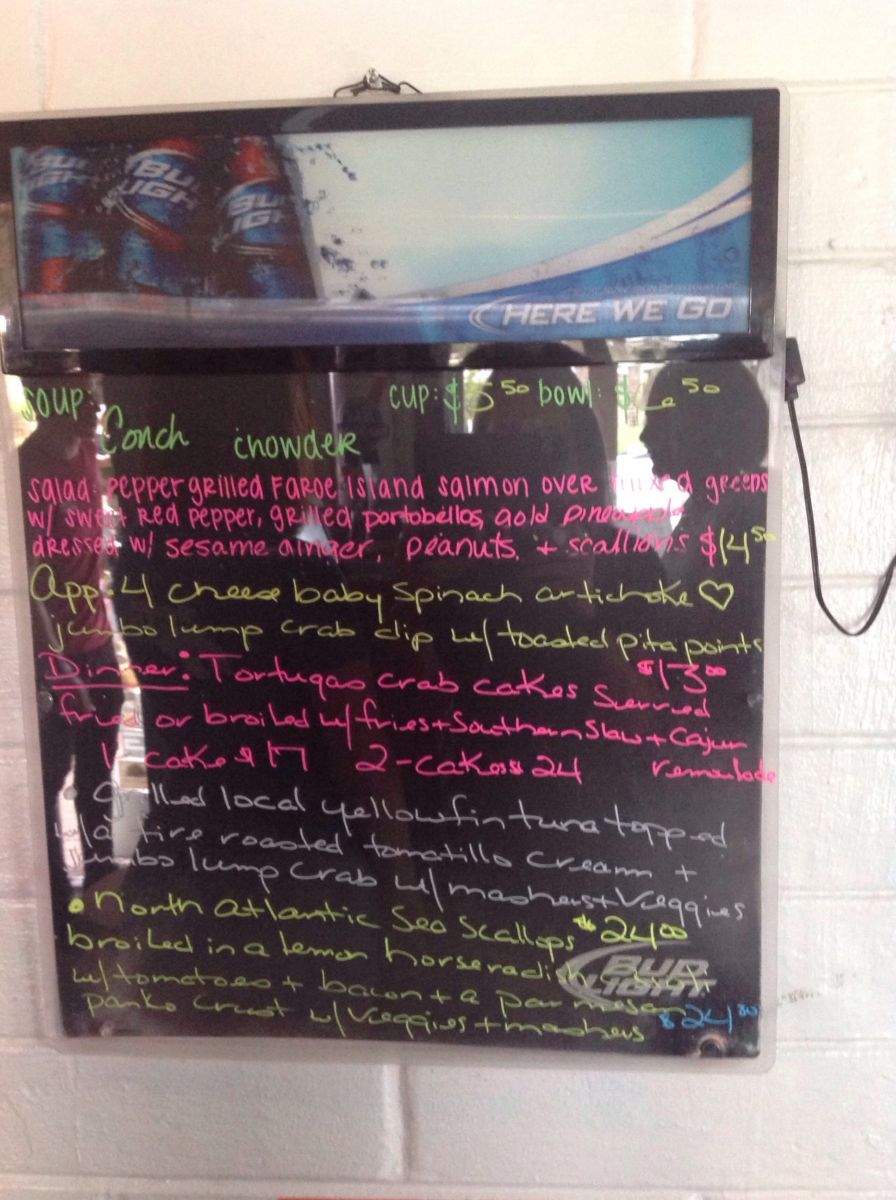 BUD LIGHT
BUD LIGHT
BUD LIGHT
HERE WE GO
SOUP: CUP: $5.50 bowl: $
Conch chowder
salad: pepper grilled FAROE Island salmon over mixed greens
w/ sweet Red pepper, grilled portobellos, gold pineapple
dressed w/ sesame ginger, peanuts, + scallions $14.50
App: 4 cheese baby spinach artichoke ♡
jumbo lump crab dip w/ toasted pita points
$13.00
Dinner: Tortugas crab cakes served
fried or broiled w/ fries + Southern Slaw + Cajun
1 cake $17 2-cakes $24 remoulade
• grilled local yellowfin tuna topped
w/ a fire roasted tomatillo cream +
Jumbo lump Crab w/ mashers + Veggies
$24.00
• North Atlantic Sea Scallops
broiled in a lemon horseradish
w/ tomatoes + bacon + a parmesan
panko Crust w/ Veggies + mashers $24
BUD LIGHT